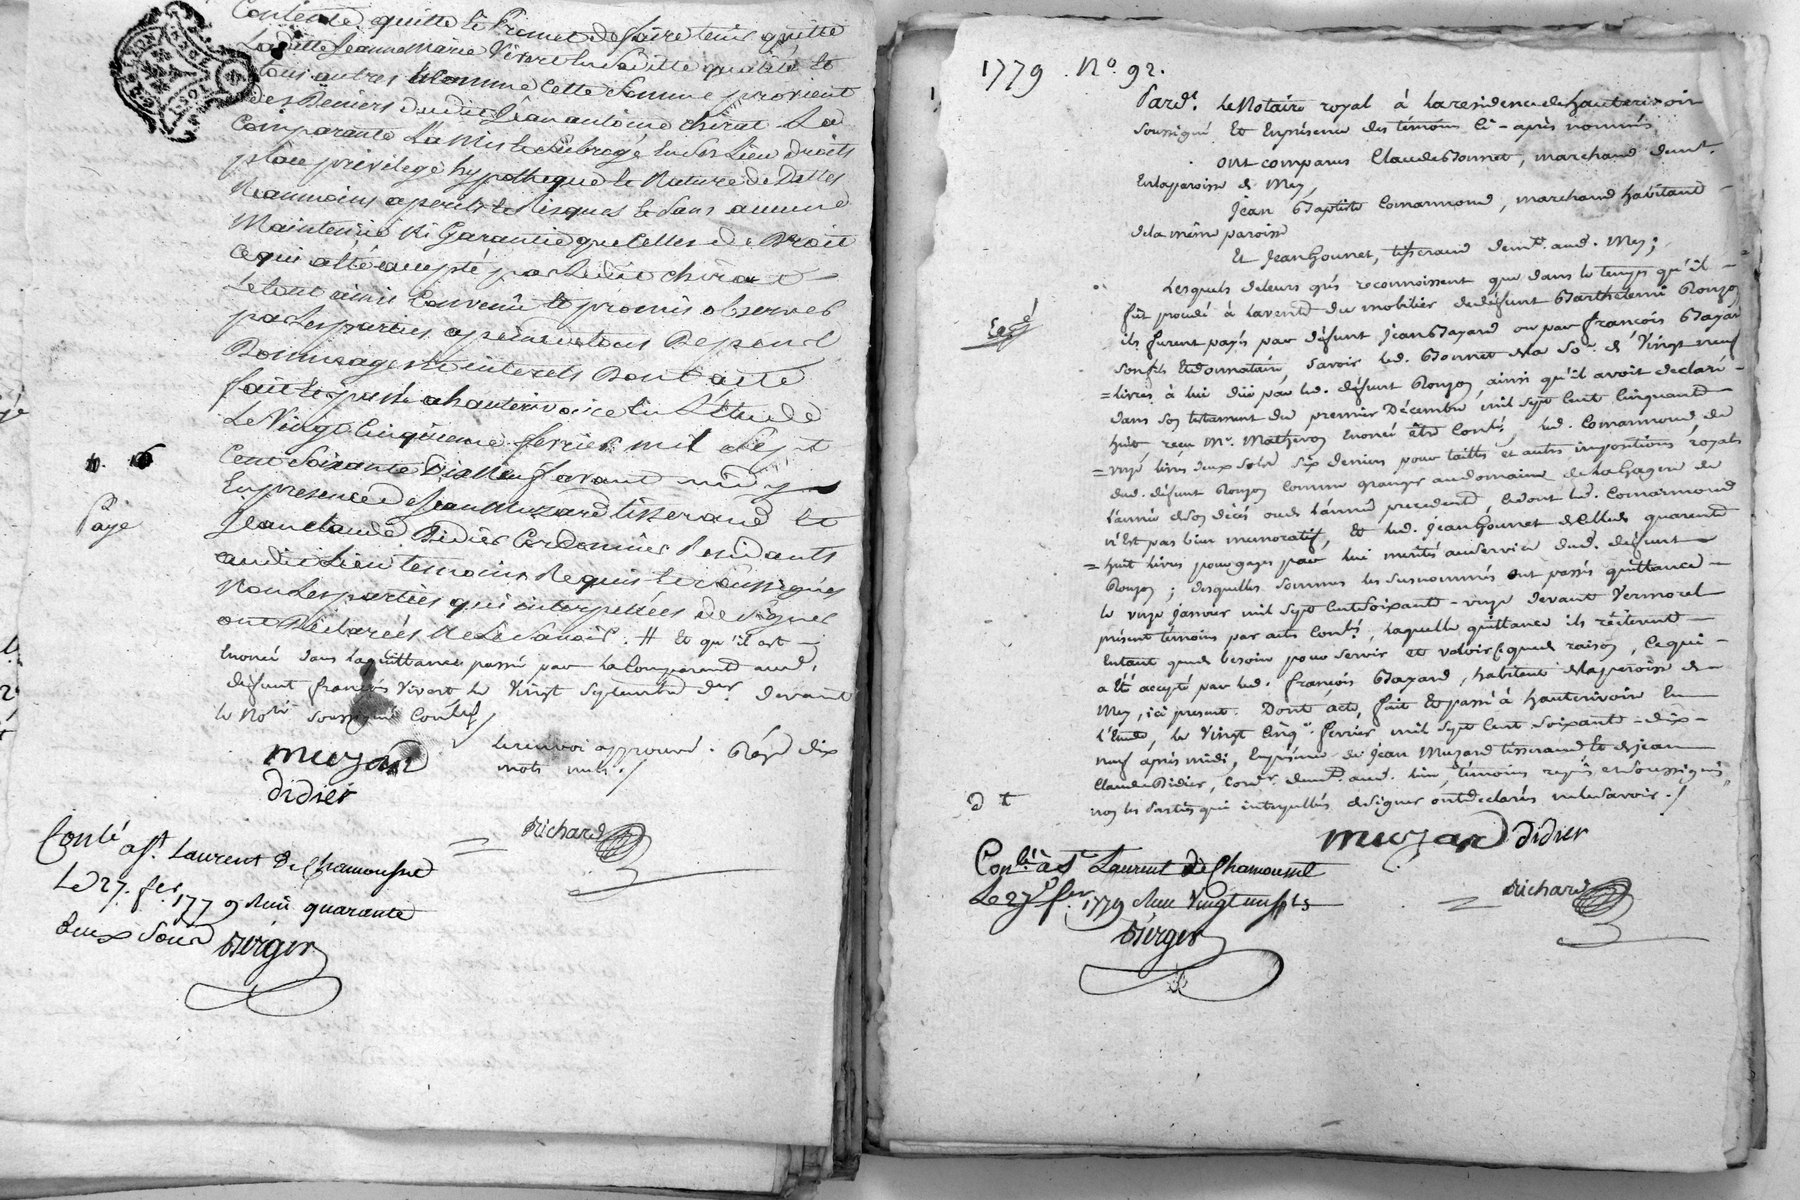 Contente, quitte et Promet de faire tenir quitte
Laditte Jeanne Marie Vivert en saditte qualité et
tous autres et comme cette somme provient
des Deniers dudit Jean antoine chirat La
Comparante La mis et subrogé en ses Lieu droits
place privilege hypotheque et Nature de Dettes
Neanmoins a perils et Risques et sans aucune
Maintenue Ni Garantie que celles de Droit
ce qui a été accepté par Ledit chirat
Le tout ainsi Convenu et promis observer
par les parties a peine de tous Depens
Dommages et interets Dont acte
fait et passé a hauterivoire en L'étude
Le Vingt Cinquieme fevrier mil sept
Cent soixante Dix Neuf avant midy
En presence de Jean Muzard tisserand et
Jean claude Didier Cordonnier Residants
audit Lieu temoins Requis et soussignés
Non Les parties qui interpellées de signer
ont Déclarées Ne Le Savoir. # Et qu'il est
Enoncé dans la quittance passé par la Comparante aud.
défunt françois Vivert le Vingt septembre der devant
le Nore soussigné Conlé
muzard
didier
le renvoi approuvé. Rayé dix
mots nuls./
Richard
Conlé à St. Laurent de Chamousset
Le 27. fer. 1779 Reçu quarante
deux sous
Berger
Payé
1779 . No. 92.
Pardt. Le Notaire royal à la residence de hauterivoire
soussigné Et En présence des témoins ci-après nommés
ont comparus Claude Bonnet, marchand demt.
En la paroisse de Mey,
Jean Baptiste Comarmond, marchand habitant
de la même paroisse
Et Jean Gounet, tisserand demt. aud. Mey;
Lesquels de leurs grés reconnoissent que dans le temps qu'il
fut procédé à la vente du mobilier du défunt Barthelemi Ronzon
ils furent payés par défunt Jean Bayard ou par françois Bayard
son fils Et donnataire, savoir led. Bonnet de la so. de Vingt neuf
= livres à lui düe par led. défunt Ronzon, ainsi qu'il avoit declaré
dans son testament du premier Décembre mil sept Cent Cinquante
huit reçu Me. Mathevon Enoncé être Conlé, led. Comarmond de
= onze livres deux sols six deniers pour tailles et autres impositions royales
dud. défunt Ronzon comme granger au domaine de la Gagere de
l'année de son décès ou de l'année precedente, ce dont led. Comarmond
n'est pas bien memoratif, Et led. Jean Gounet de Celle de quarente
= huit livres pour gages par lui merités au service dud. défunt
Ronzon; desquelles sommes les susnommés ont passés quittance
le onze Janvier mil sept Cent soixante-onze devant Vermorel
présent témoins par acte Conlé, laquelle quittance ils réiterent
Entant que de besoin pour servir et valoir ce que de raison, Ce qui
a été accepté par led. françois Bayard, habitant de la paroisse de
Mey, ici present. Dont acte, fait Et passé à hauterivoire En
l'Etude, le Vingt Cinq fevrier mil sept Cent soixante-dix-
neuf après midi, En présence de Jean Muzard tisserand Et de Jean
Claude Didier, Cordr. demt. aud. lieu, témoins requis et soussignés,
non les Parties qui interpellés de signer ont declarés ne le savoir./
muzard didier
Conlé à St Laurent de Chamousset
Le 27 fer 1779 Reçu Vingt un sols
Berger
Richard